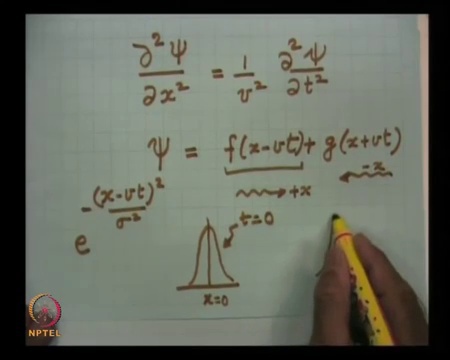 ∂²Ψ/∂x² = 1/v² ∂²Ψ/∂t²
Ψ = f(x-vt) + g(x+vt)
→ +x
← -x
e^(-(x-vt)²/σ²)
t=0
x=0
NPTEL